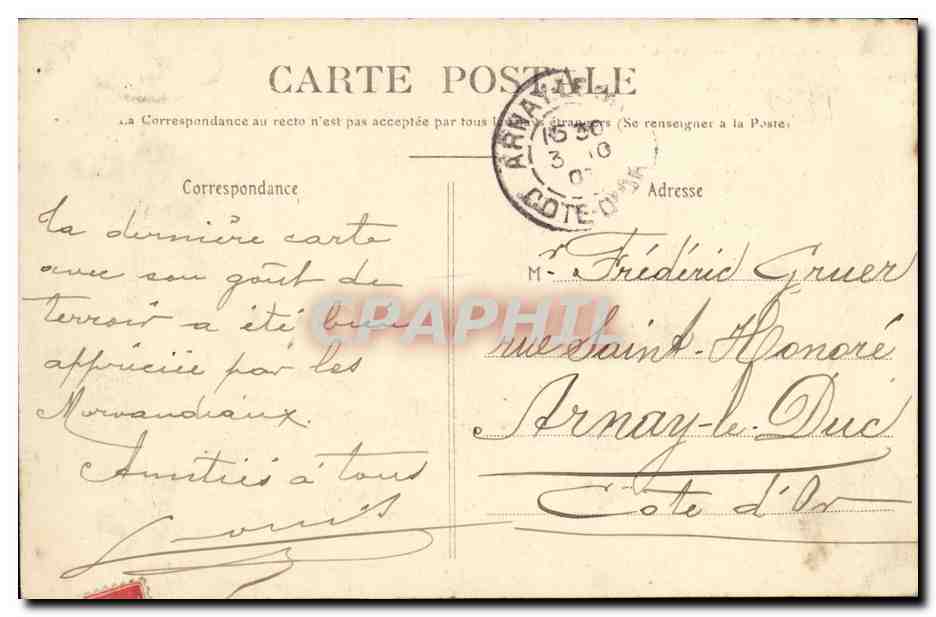 CARTE POSTALE
La Correspondance au recto n'est pas acceptée par tous les pays étrangers (Se renseigner à la Poste)
ARNAY-LE-
15 30
3 10
0
COTE-D'OR
Correspondance
Adresse
La dernière carte
avec son goût de
terroir a été bien
appréciée par les
Morvandiaux.
Amitiés à tous
Louis
Mr Frédéric Gruer
rue Saint-Honoré
Arnay-le-Duc
Côte d'Or
CPAPHIL